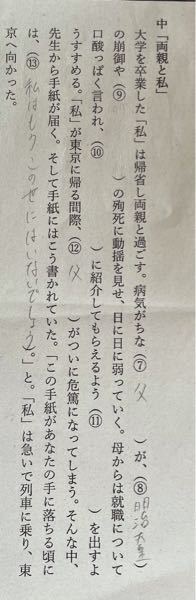 中「両親と私」
大学を卒業した「私」は帰省し両親と過ごす。病気がちな(⑦ 父 )が、(⑧明治天皇)
の崩御や(⑨ )の殉死に動揺を見せ、日に日に弱っていく。母からは就職について
口酸っぱく言われ、(⑩ )に紹介してもらえるよう(⑪ )を出すよ
うすすめる。「私」が東京に帰る間際、(⑫ 父 )がついに危篤になってしまう。そんな中、
先生から手紙が届く。そして手紙にはこう書かれていた。「この手紙があなたの手に落ちる頃に
は、(⑬ 私はもうこの世にはいないでしょう)。」と。「私」は急いで列車に乗り、東
京へ向かった。